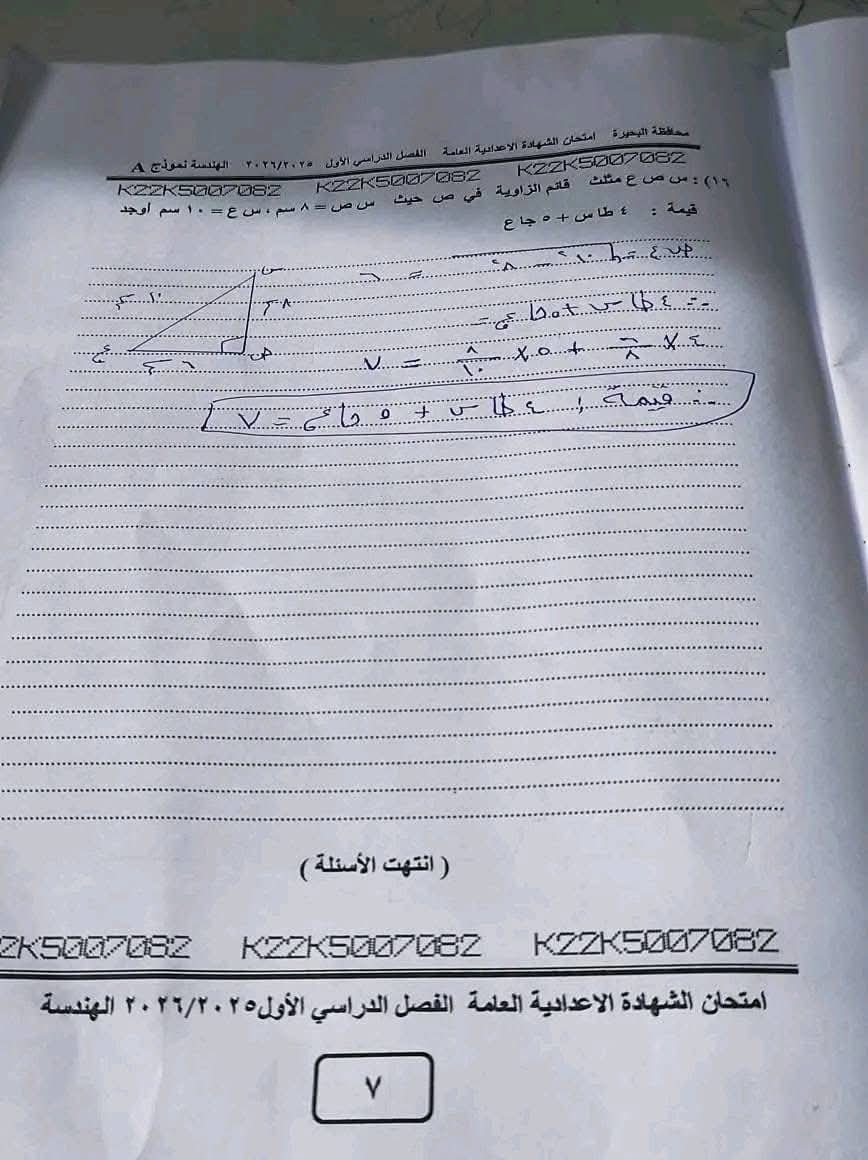 محافظة البحيرة امتحان الشهادة الاعدادية العامة الفصل الدراسي الأول ٢٠٢٦/٢٠٢٥ الهندسة نموذج A
K22K5007082 K22K5007082 K22K5007082
١٦): س ص ع مثلث قائم الزاوية في ص حيث س ص = ٨ سم ، س ع = ١٠ سم أوجد
قيمة : ٤ طا س + ٥ جا ع
ص ع = √١٠² − ٨² = ٦
س
١٠ سم
٨ سم
ع
ص
٦ سم
∴ ٤ طا س + ٥ جا ع =
٤ × ٦/٨ + ٥ × ٨/١٠ = ٧
∴ قيمة : ٤ طا س + ٥ جا ع = ٧
( انتهت الأسئلة )
2K5007082 K22K5007082 K22K5007082
امتحان الشهادة الاعدادية العامة الفصل الدراسي الأول ٢٠٢٦/٢٠٢٥ الهندسة
٧